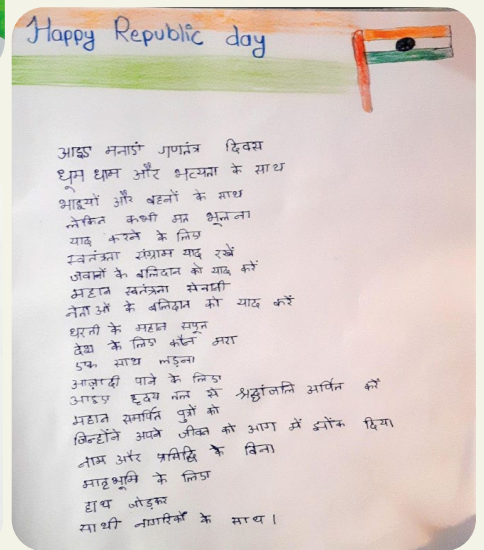 Happy Republic day
आइए मनाएं गणतंत्र दिवस
धूम धाम और भव्यता के साथ
भाइयों और बहनों के साथ
लेकिन कभी मत भूलना
याद करने के लिए
स्वतंत्रता संग्राम याद रखें
जवानों के बलिदान को याद करें
महान स्वतंत्रता सेनानी
नेताओं के बलिदान को याद करें
धरती के महान सपूत
देश के लिए कौन मरा
एक साथ लड़ना
आज़ादी पाने के लिए
आइए हृदय तल से श्रद्धांजलि अर्पित करें
महान समर्पित पुत्रों को
जिन्होंने अपने जीवन को आग में झोंक दिया
नाम और प्रसिद्धि के बिना
मातृभूमि के लिए
हाथ जोड़कर
साथी नागरिकों के साथ।